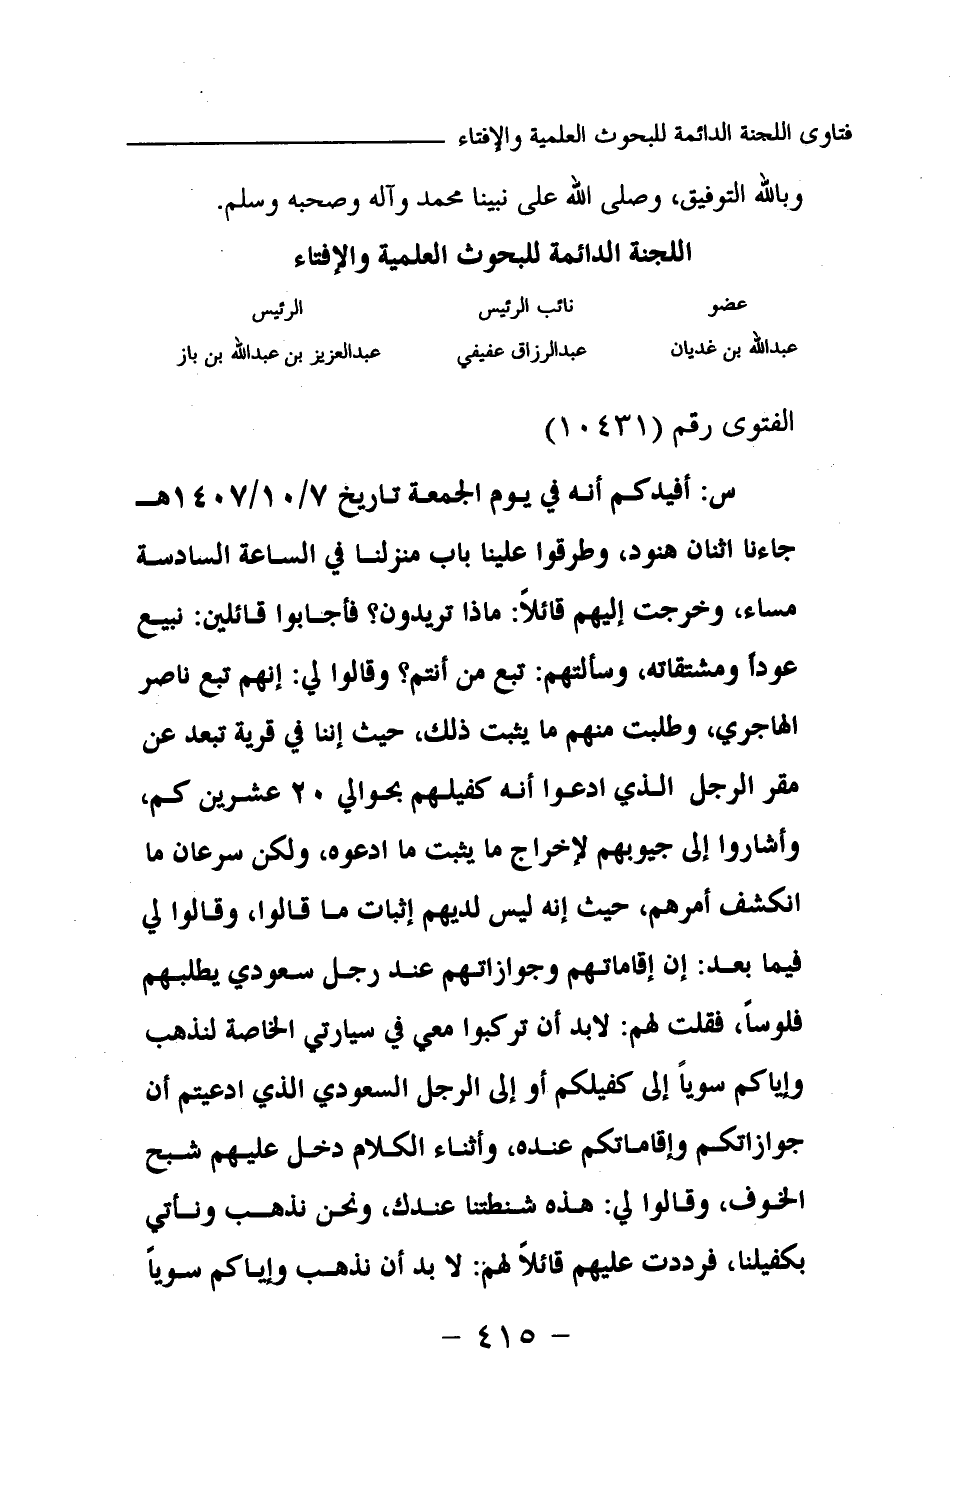 فتاوى اللجنة الدائمة للبحوث العلمية والإفتاء
وبالله التوفيق، وصلى الله على نبينا محمد وآله وصحبه وسلم.
اللجنة الدائمة للبحوث العلمية والإفتاء
عضو نائب الرئيس الرئيس
عبدالله بن غديان عبدالرزاق عفيفي عبدالعزيز بن عبدالله بن باز
الفتوى رقم (١٠٤٣١)
س: أفيدكم أنه في يوم الجمعة تاريخ ١٤٠٧/١٠/٧هـ
جاءنا اثنان هنود، وطرقوا علينا باب منزلنا في الساعة السادسة
مساء، وخرجت إليهم قائلاً: ماذا تريدون؟ فأجابوا قائلين: نبيع
عوداً ومشتقاته، وسألتهم: تبع من أنتم؟ وقالوا لي: إنهم تبع ناصر
الهاجري، وطلبت منهم ما يثبت ذلك، حيث إننا في قرية تبعد عن
مقر الرجل الذي ادعوا أنه كفيلهم بحوالي ٢٠ عشرين كم،
وأشاروا إلى جيوبهم لإخراج ما يثبت ما ادعوه، ولكن سرعان ما
انكشف أمرهم، حيث إنه ليس لديهم إثبات ما قالوا، وقالوا لي
فيما بعد: إن إقاماتهم وجوازاتهم عند رجل سعودي يطلبهم
فلوساً، فقلت لهم: لابد أن تركبوا معي في سيارتي الخاصة لنذهب
وإياكم سوياً إلى كفيلكم أو إلى الرجل السعودي الذي ادعيتم أن
جوازاتكم وإقاماتكم عنده، وأثناء الكلام دخل عليهم شبح
الخوف، وقالوا لي: هذه شنطتنا عندك، ونحن نذهب ونأتي
بكفيلنا، فرددت عليهم قائلاً لهم: لا بد أن نذهب وإياكم سوياً
– ٤١٥ –